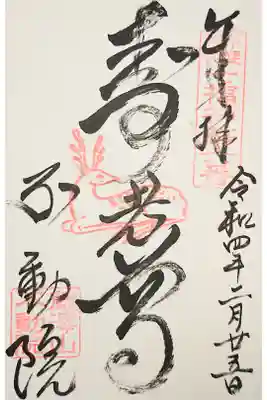 奉拝
令和四年二月廿五日
寿老尊
不動院